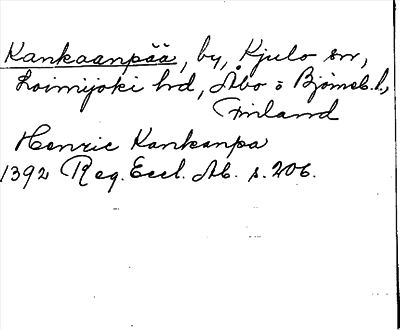 Kankaanpää, by, Kjulo sn,
Loimijoki hd, Åbo o Björneb. l.,
Finland
Henric Kankanpa
1392 Reg. Eccl. Ab. s. 206.